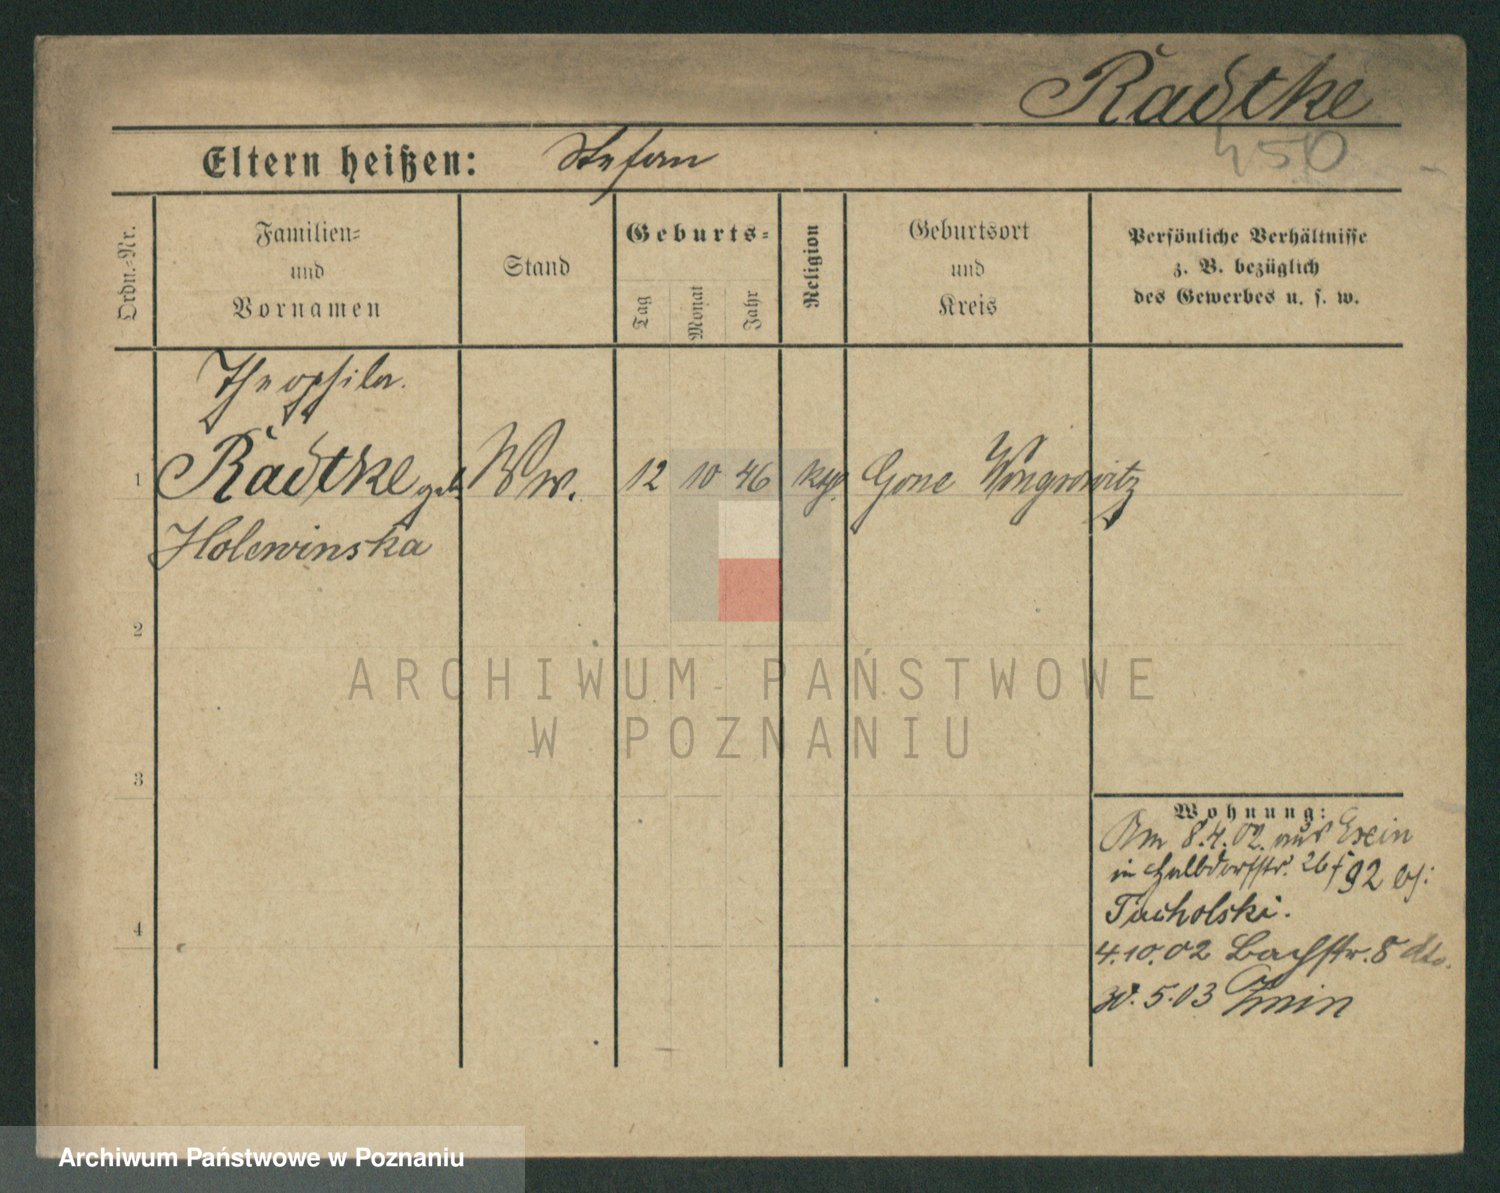 Radtke
450
Eltern heißen: Stefan
Ordn.-Nr.
Familien-
und
Vornamen
Stand
Geburts-
Tag
Monat
Jahr
Religion
Geburtsort
und
Kreis
Persönliche Verhältnisse
z. B. bezüglich
des Gewerbes u. s. w.
Theophila.
1 Radtke geb. Ww. 12 10 46 kth. Wongrowitz
Holewinska
2
3
4
Wohnung:
Am 8.4.02. aus Exin
in Halbdorfstr. 26/ 92 b/:
Tucholski.
4.10.02 Bachstr. 8 dto.
30.5.03 Znin
ARCHIWUM PAŃSTWOWE
W POZNANIU
Archiwum Państwowe w Poznaniu